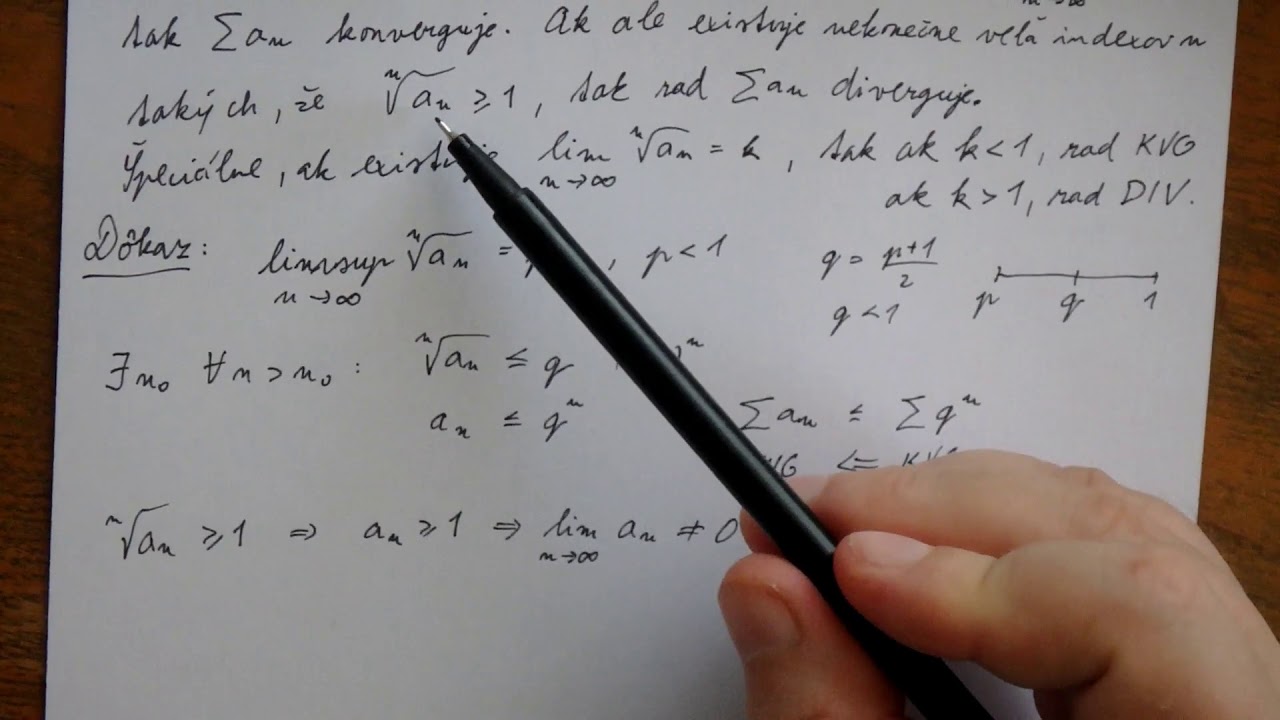 tak ∑aₙ konverguje. Ak ale existuje nekonečne veľa indexov n
takých, že ⁿ√aₙ ≥ 1, tak rad ∑aₙ diverguje.
Špeciálne, ak existuje lim ⁿ√aₙ = k, tak ak k < 1, rad KVG
n→∞ ak k > 1, rad DIV.
Dôkaz: limsup ⁿ√aₙ = p, p < 1 q = (p+1)/2
n→∞ q < 1 p q 1
∃n₀ ∀n > n₀ : ⁿ√aₙ ≤ q ⁿ
aₙ ≤ qⁿ ∑aₙ ≤ ∑qⁿ
KVG ⇐ KVG
ⁿ√aₙ ≥ 1 ⇒ aₙ ≥ 1 ⇒ lim aₙ ≠ 0
n→∞